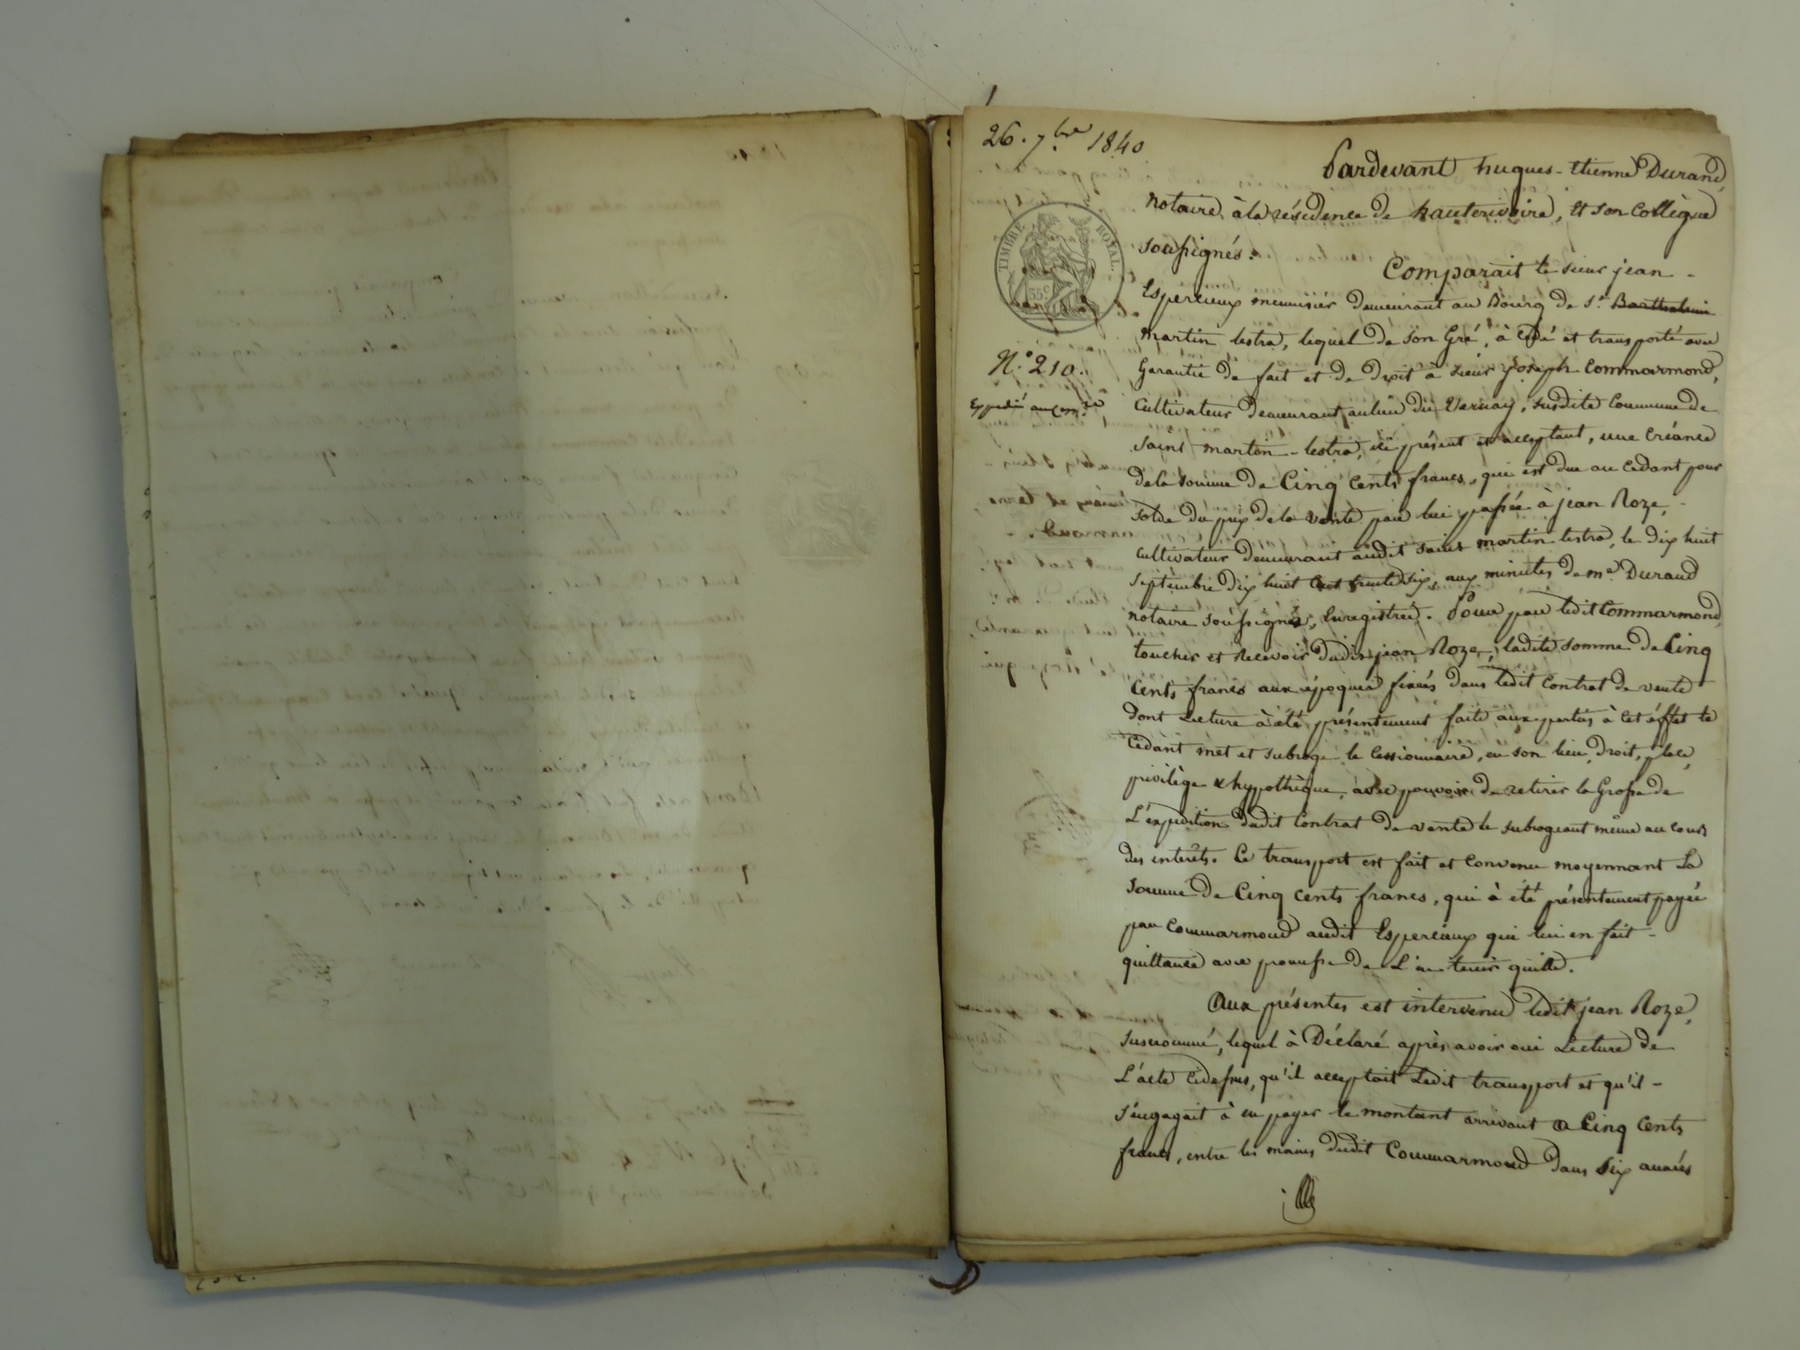 26. 7bre 1840
Pardevant hugues-Etienne Durand,
notaire à la résidence de hauterivoire, et son Collègue
soussignés.
Comparait le sieur jean -
Espercieux menuisier demeurant au Bourg de St. Barthelemi
martin lestra, lequel de son Gré, à Cédé et transporté avec
Garantie de fait et de Droit à sieur joseph Commarmond,
TIMBRE ROYAL.
35c
N.o 210.
Cultivateur demeurant au lieu du Vernay, susdite Commune de
saint martin-lestra, ici présent et acceptant, une Créance
de la somme de Cinq Cents francs, qui est due au Cedant pour
solde du prix de la vente par lui passée à jean Roze,
cultivateur demeurant audit saint martin lestra, le dix huit
septembre dix huit Cent trente six, aux minutes de me. Durand
notaire soussigné, Enregistrée. Pour par ledit Commarmond,
toucher et Recevoir dudit jean Roze, ladite somme de Cinq
Cents francs aux époques fixées dans ledit Contrat de vente
dont Lecture à été présentement faite aux parties à cet éffet le
Cédant met et subroge le Cessionnaire, en son lieu, Droit, place,
privilège & hypothèque, avec pouvoir de retirer la Grosse de
L'expédition dudit Contrat de vente le subrogeant même au cours
des intérêts. Ce transport est fait et Convenu moyennant La
somme de Cinq Cents francs, qui à été présentement payée
par Commarmond audit Espercieux qui lui en fait -
quittance avec promesse de L'en tenir quitte.
Aux présentes est intervenu ledit jean Roze,
susnommé, lequel à Déclaré après avoir oui Lecture de
L'acte Cidessus, qu'il acceptait Ledit transport et qu'il -
s'engageait à en payer le montant arrivant a Cinq Cents
francs, entre les mains dudit Commarmond dans six années